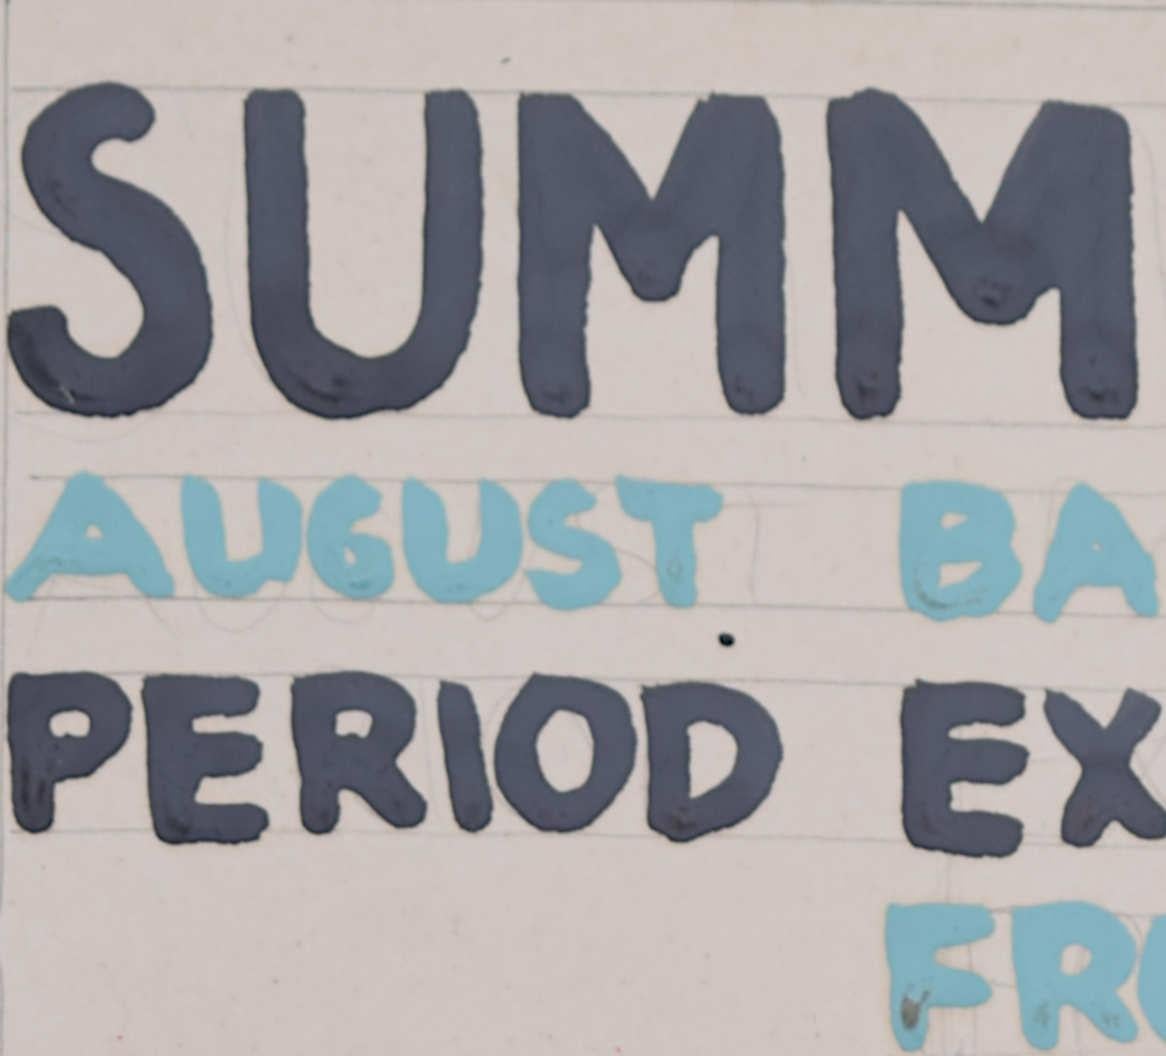 SUMM
AUGUST BA
PERIOD EX
FR